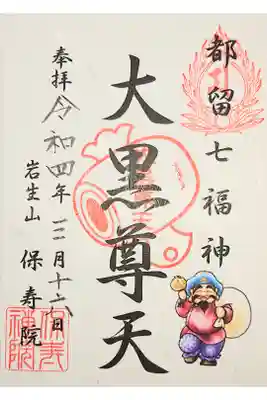 都留七福神
大黒尊天
奉拝
令和四年三月十六日
岩生山
保寿院
保寿
神院